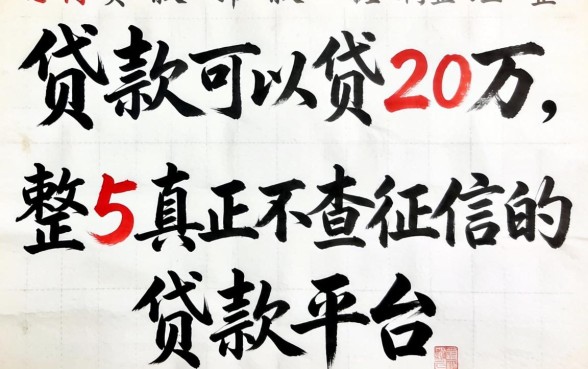 贷款可以贷20万，
整5真正不查征信的
贷款平台